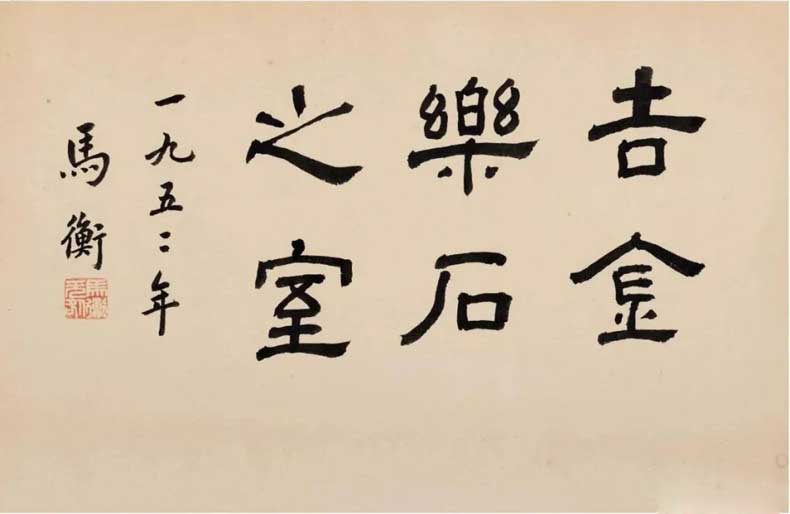 吉金
樂石
之室
一九五二年
馬衡